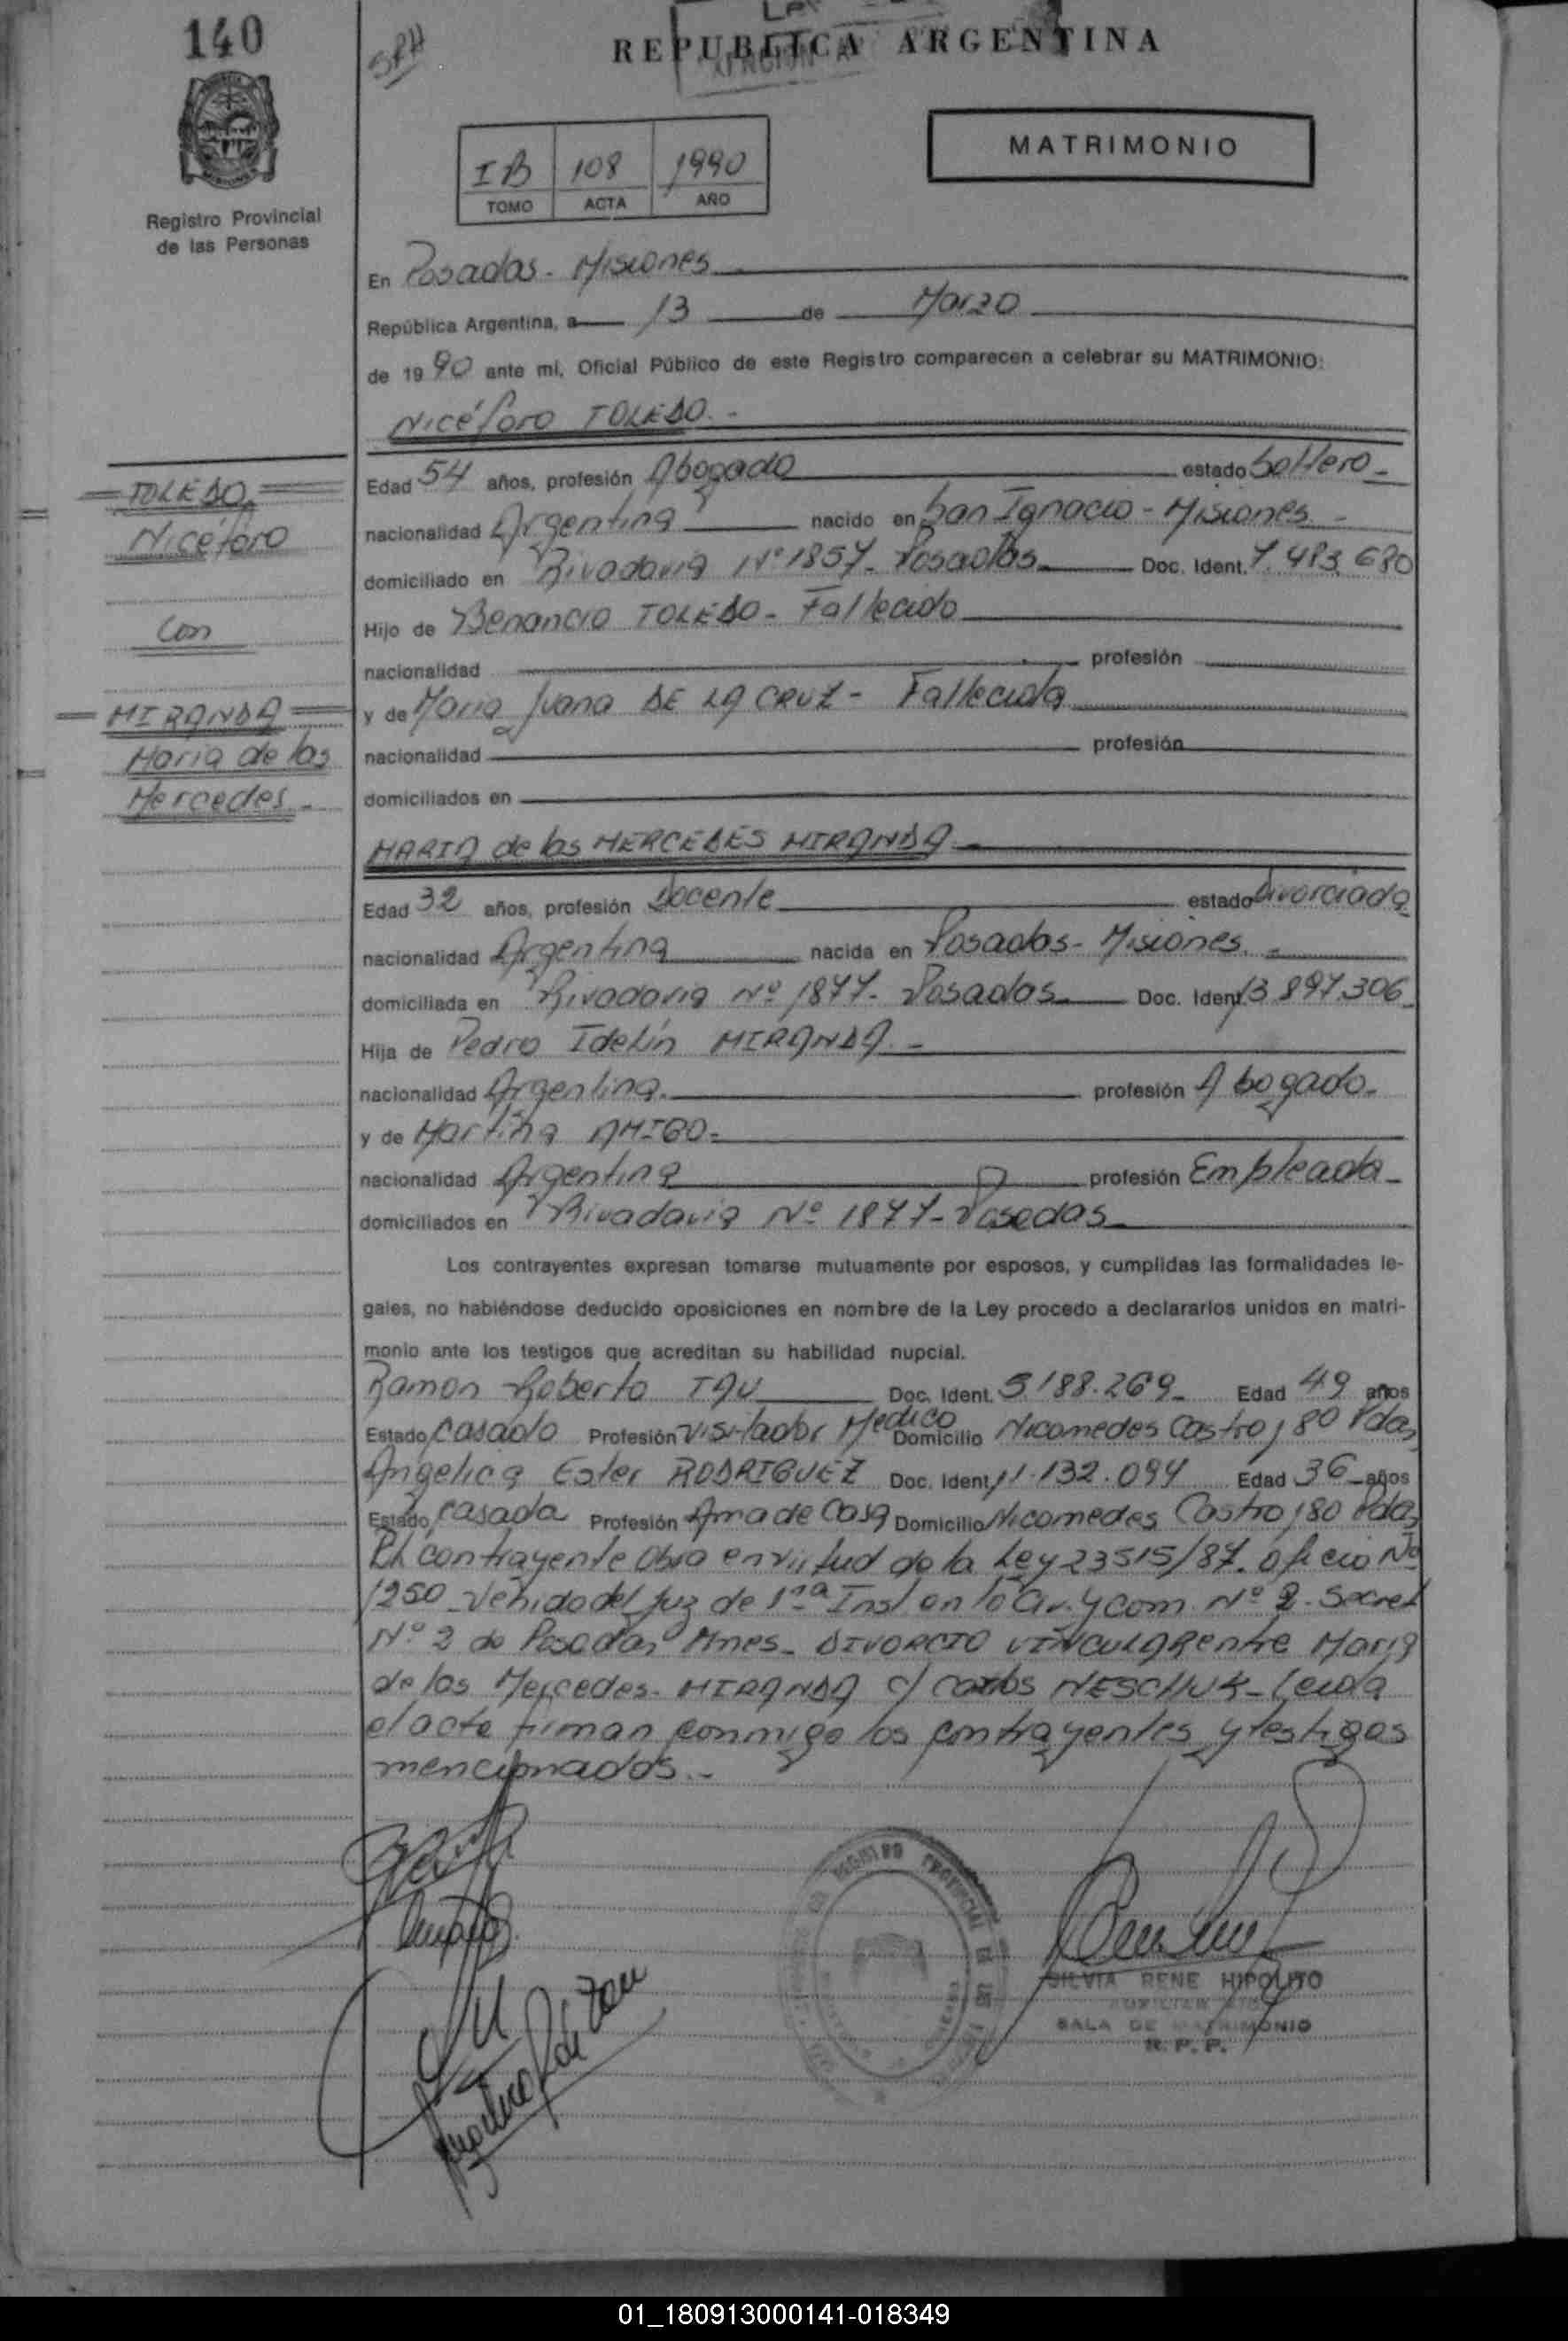 140
REPUBLICA ARGENTINA
MATRIMONIO
IB 108 1990
TOMO ACTA AÑO
Registro Provincial
de las Personas
En Posadas - Misiones
República Argentina, a 13 de Marzo
de 1990 ante mi, Oficial Público de este Registro comparecen a celebrar su MATRIMONIO:
Nicéforo TOLEDO.-
TOLEDO,
Nicéforo
Con
MIRANDA
Maria de las
Mercedes -
Edad 54 años, profesión Abogado estado Soltero -
nacionalidad Argentina nacido en San Ignacio - Misiones -
domiciliado en Rivadavia Nº 1857 - Posadas Doc. Ident. 7.483.680
Hijo de Benancio TOLEDO - Fallecido
nacionalidad profesión
y de Maria Juana DE LA CRUZ - Fallecida
nacionalidad profesión
domiciliados en
MARIA de las MERCEDES MIRANDA -
Edad 32 años, profesión Docente estado divorciada
nacionalidad Argentina nacida en Posadas - Misiones. -
domiciliada en Rivadavia Nº 1877 - Posadas Doc. Ident. 13.897.306
Hija de Pedro Idelín MIRANDA. -
nacionalidad Argentina. profesión Abogado -
y de Martina AMIGO -
nacionalidad Argentina profesión Empleada -
domiciliados en Rivadavia Nº 1877 - Posadas
Los contrayentes expresan tomarse mutuamente por esposos, y cumplidas las formalidades le-
gales, no habiéndose deducido oposiciones en nombre de la Ley procedo a declararlos unidos en matri-
monio ante los testigos que acreditan su habilidad nupcial.
Ramon Roberto TAU Doc. Ident. 5188.269 - Edad 49 años
Estado Casado Profesión Visitador Medico Domicilio Nicomedes Castro 180 Pdas
Angelica Ester RODRIGUEZ Doc. Ident. 11.132.094 Edad 36 años
Estado Casada Profesión Ama de Casa Domicilio Nicomedes Castro 180 Pdas
contrayente Obra en virtud de la Ley 23515/87. Oficio Nº
1250 - Venido del Juz de 1ra Inst en lo Civ. y Com. Nº 2 - Secret
Nº 2 de Posadas Mnes - DIVORCIO VINCULAR entre Maria
de las Mercedes - MIRANDA c/ Carlos NESCHUK - Leida
el acta firman conmigo los contrayentes y testigos
mencionados. -
SILVIA RENE HIPOLITO
SALA DE MATRIMONIO
R. P. P.
01_180913000141-018349